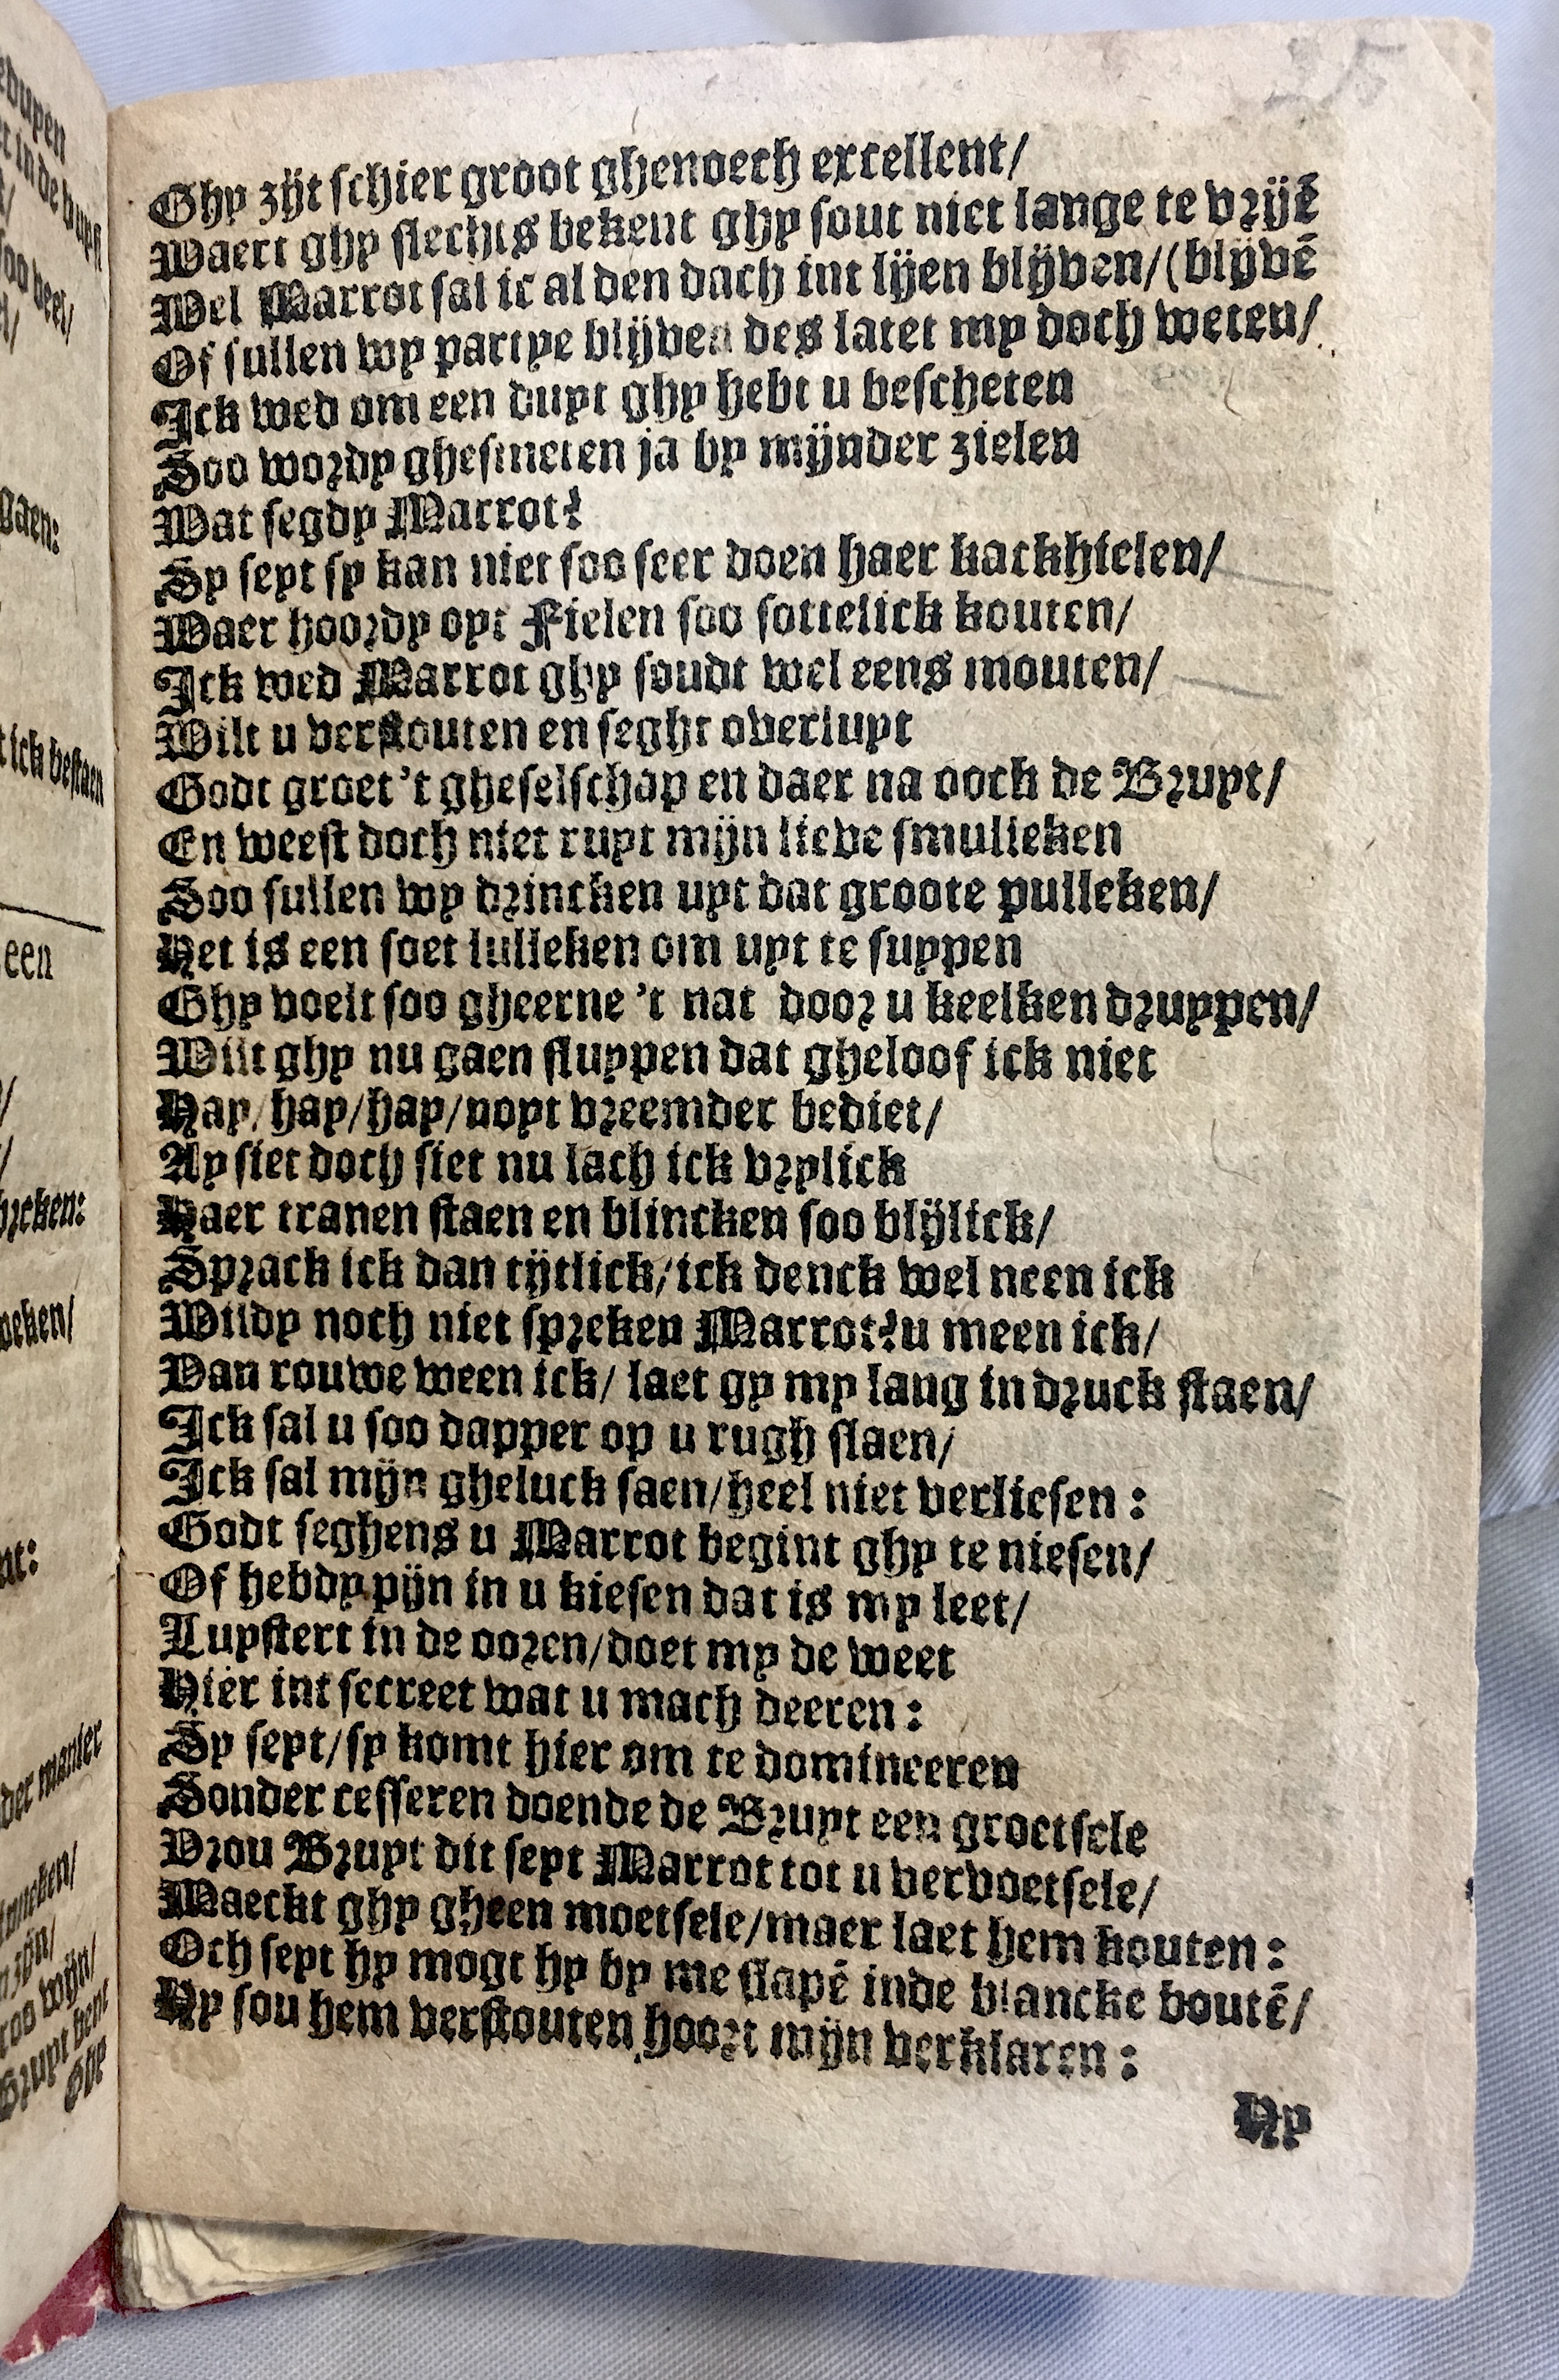 25
Ghy zijt schier groot ghenoech excellent/
Waert ghy slechts bekent ghy sout niet lange te vrijē
Wel Marrot sal ic al den dach int lijen blijven/(blijvē
Of sullen wy partye blijven des latet my doch weten/
Ick wed om een duyt ghy hebt u bescheten
Soo wordy ghesmeten ja by mijnder zielen
Wat segdy Marrot?
Sy seyt sy kan niet soo seer doen haer kackhielen/
Waer hoordy opt Fielen soo sottelick kouten/
Ick wed Marrot ghy soudt wel eens mouten/
Wilt u verstouten en seght overluyt
Godt groet 't gheselschap en daer na oock de Bruyt/
En weest doch niet ruyt mijn lieve smulleken
Soo sullen wy drincken uyt dat groote pulleken/
Het is een soet lulleken om uyt te suypen
Ghy voelt soo gheerne 't nat door u keelken druypen/
Wilt ghy nu gaen sluypen dat gheloof ick niet
Hay/hay/hay/noyt vreemder bediet/
Ay siet doch siet nu lach ick vrylick
Haer tranen staen en blincken soo blijlick/
Sprack ick dan tijtlick/ick denck wel neen ick
Wildy noch niet spreken Marrot?u meen ick/
Van rouwe ween ick/ laet gy my lang in druck staen/
Ick sal u soo dapper op u rugh slaen/
Ick sal mijn gheluck saen/heel niet verliesen:
Godt seghens u Marrot begint ghy te niesen/
Of hebdy pijn in u kiesen dat is my leet/
Luystert in de ooren/doet my de weet
Hier int secreet wat u mach deeren:
Sy seyt/sy komt hier om te domineeren
Sonder cesseren doende de Bruyt een groetsele
Vrou Bruyt dit seyt Marrot tot u vervoetsele/
Maeckt ghy gheen moetsele/maer laet hem kouten:
Och seyt hy mogt hy by me slapē inde blancke boutē/
Hy sou hem verstouten hoort mijn verklaren:
Hy